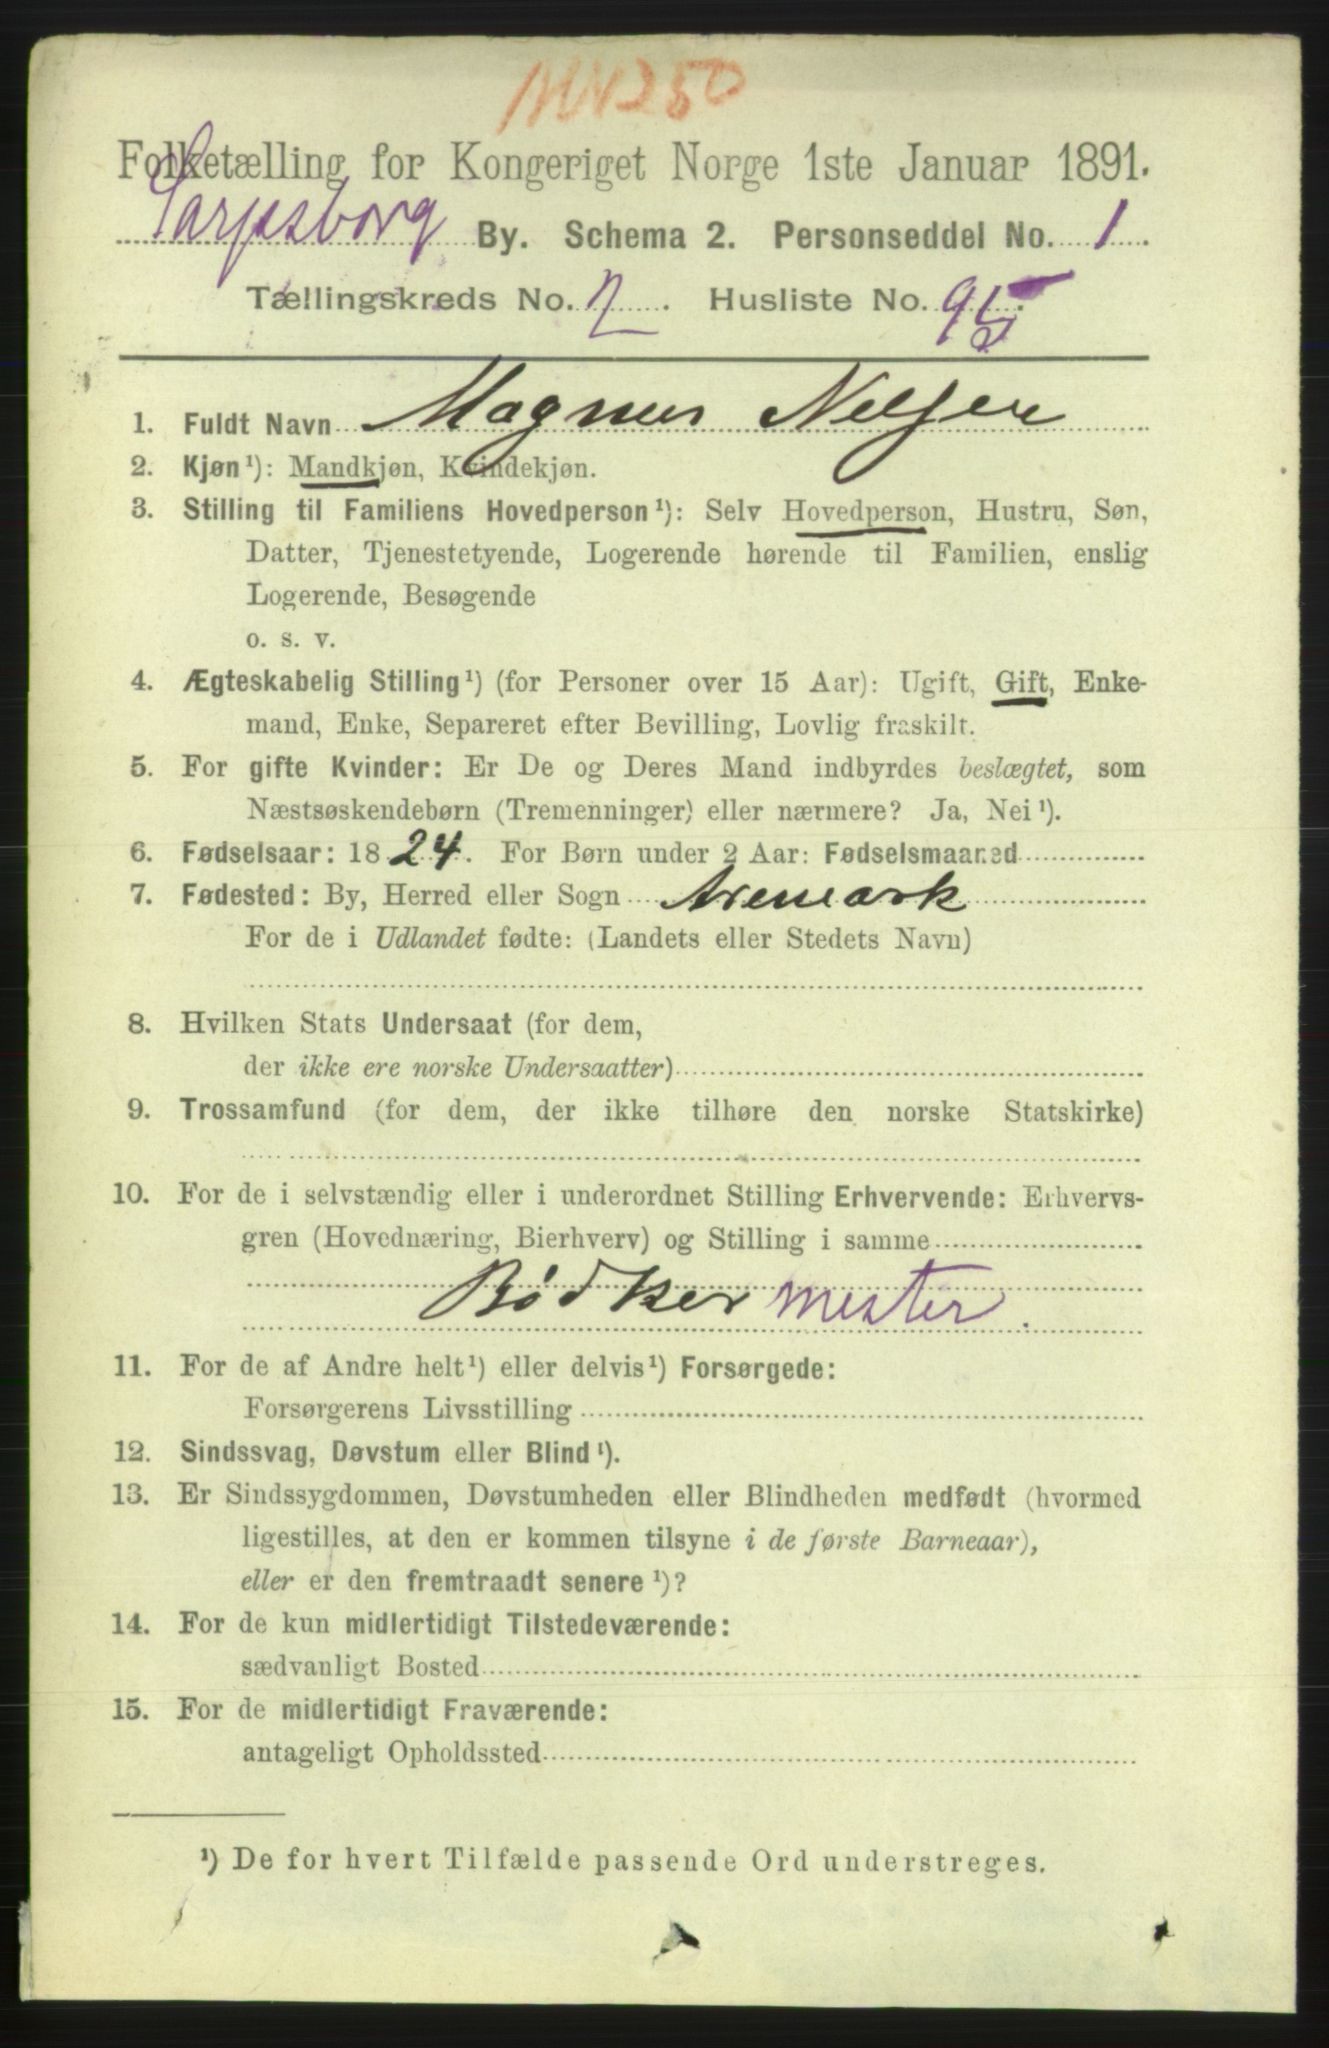 Folketælling for Kongeriget Norge 1ste Januar 1891.
Sarpsborg By. Schema 2. Personseddel No. 1.
Tællingskreds No. 2. Husliste No. 95.
1. Fuldt Navn Magnus Nelsen
2. Kjøn¹): Mandkjøn, Kvindekjøn.
3. Stilling til Familiens Hovedperson¹): Selv Hovedperson, Hustru, Søn,
Datter, Tjenestetyende, Logerende hørende til Familien, enslig
Logerende, Besøgende
o. s. v.
4. Ægteskabelig Stilling¹) (for Personer over 15 Aar): Ugift, Gift, Enke-
mand, Enke, Separeret efter Bevilling, Lovlig fraskilt.
5. For gifte Kvinder: Er De og Deres Mand indbyrdes beslægtet, som
Næstsøskendebørn (Tremenninger) eller nærmere? Ja, Nei¹).
6. Fødselsaar: 1824. For Børn under 2 Aar: Fødselsmaaned
7. Fødested: By, Herred eller Sogn Aremark
For de i Udlandet fødte: (Landets eller Stedets Navn)
8. Hvilken Stats Undersaat (for dem,
der ikke ere norske Undersaatter)
9. Trossamfund (for dem, der ikke tilhøre den norske Statskirke)
10. For de i selvstændig eller i underordnet Stilling Erhvervende: Erhvervs-
gren (Hovednæring, Bierhverv) og Stilling i samme
Bødker mester.
11. For de af Andre helt¹) eller delvis¹) Forsørgede:
Forsørgerens Livsstilling
12. Sindssvag, Døvstum eller Blind¹).
13. Er Sindssygdommen, Døvstumheden eller Blindheden medfødt (hvormed
ligestilles, at den er kommen tilsyne i de første Barneaar),
eller er den fremtraadt senere¹)?
14. For de kun midlertidigt Tilstedeværende:
sædvanligt Bosted
15. For de midlertidigt Fraværende:
antageligt Opholdssted
¹) De for hvert Tilfælde passende Ord understreges.